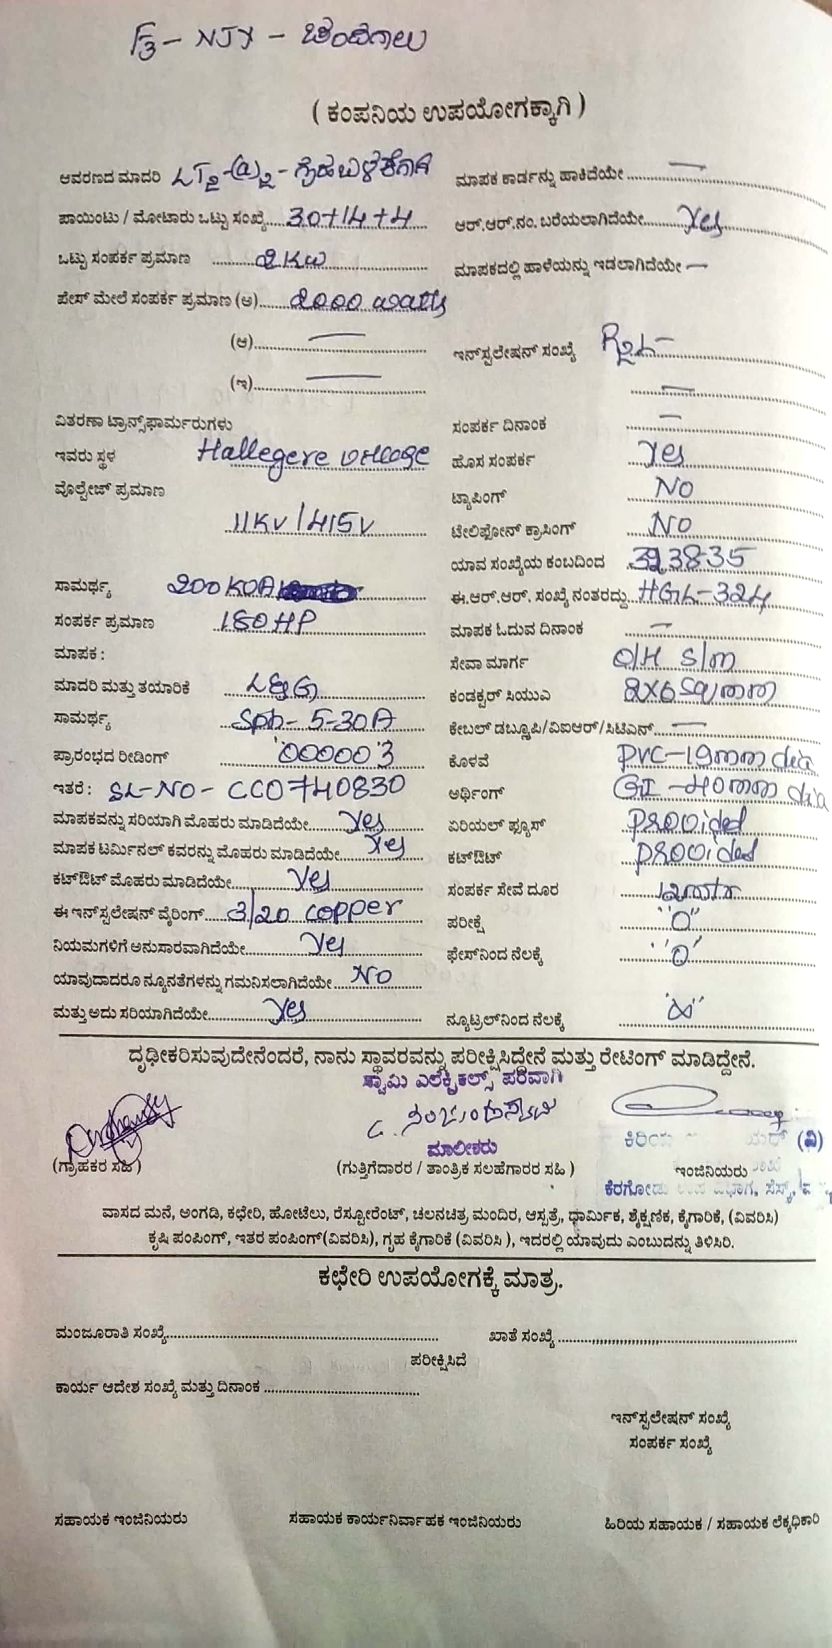 F3 - NJY - ಚಂದಗಾಲು
( ಕಂಪನಿಯ ಉಪಯೋಗಕ್ಕಾಗಿ )
ಆವರಣದ ಮಾದರಿ LT2-(a)2 - ಗೃಹಬಳಕೆಗಾಗಿ
ಮಾಪಕ ಕಾರ್ಡನ್ನು ಹಾಕಿದೆಯೇ —
ಪಾಯಿಂಟು / ಮೋಟಾರು ಒಟ್ಟು ಸಂಖ್ಯೆ 30+14+4
ಆರ್.ಆರ್.ನಂ. ಬರೆಯಲಾಗಿದೆಯೇ Yes
ಒಟ್ಟು ಸಂಪರ್ಕ ಪ್ರಮಾಣ 2KW
ಮಾಪಕದಲ್ಲಿ ಹಾಳೆಯನ್ನು ಇಡಲಾಗಿದೆಯೇ —
ಪೇಸ್ ಮೇಲೆ ಸಂಪರ್ಕ ಪ್ರಮಾಣ (ಅ) 2000 watts
(ಆ) —
ಇನ್‌ಸ್ಟಲೇಷನ್ ಸಂಖ್ಯೆ
(ಇ) —
—
ವಿತರಣಾ ಟ್ರಾನ್ಸ್‌ಫಾರ್ಮರುಗಳು
ಸಂಪರ್ಕ ದಿನಾಂಕ —
ಇವರು ಸ್ಥಳ Hallegere village
ಹೊಸ ಸಂಪರ್ಕ Yes
ವೊಲ್ಟೇಜ್ ಪ್ರಮಾಣ
ಟ್ಯಾಪಿಂಗ್ NO
11KV/415V
ಟೇಲಿಫೋನ್ ಕ್ರಾಸಿಂಗ್ NO
ಯಾವ ಸಂಖ್ಯೆಯ ಕಂಬದಿಂದ
ಸಾಮರ್ಥ್ಯ 200KVA
ಈ.ಆರ್.ಆರ್. ಸಂಖ್ಯೆ ನಂತರದ್ದು HGL-324
ಸಂಪರ್ಕ ಪ್ರಮಾಣ 180HP
ಮಾಪಕ ಓದುವ ದಿನಾಂಕ —
ಮಾಪಕ :
ಸೇವಾ ಮಾರ್ಗ O/H S/m
ಮಾದರಿ ಮತ್ತು ತಯಾರಿಕೆ L&G
ಕಂಡಕ್ಟರ್ ಸಿಯುವಿ 2x6 sq/mm
ಸಾಮರ್ಥ್ಯ Sph- 5-30A
ಕೇಬಲ್ ಡಬ್ಲ್ಯೂಪಿ/ವಿಐಆರ್/ಸಿಟಿಎಸ್ —
ಪ್ರಾರಂಭದ ರೀಡಿಂಗ್ '00000'3
ಕೊಳವೆ PVC-19mm dia
ಇತರೆ : SL-NO- CC0740830
ಅರ್ಥಿಂಗ್ GI -40mm dia
ಮಾಪಕವನ್ನು ಸರಿಯಾಗಿ ಮೊಹರು ಮಾಡಿದೆಯೇ Yes
ಏರಿಯಲ್ ಫ್ಯೂಸ್ Provided
ಮಾಪಕ ಟರ್ಮಿನಲ್ ಕವರನ್ನು ಮೊಹರು ಮಾಡಿದೆಯೇ Yes
ಕಟ್‌ಔಟ್ Provided
ಕಟ್‌ಔಟ್ ಮೊಹರು ಮಾಡಿದೆಯೇ Yes
ಸಂಪರ್ಕ ಸೇವೆ ದೂರ 12mtr
ಈ ಇನ್‌ಸ್ಟಲೇಷನ್ ವೈರಿಂಗ್ 3/20 copper
ಪರೀಕ್ಷೆ "0"
ನಿಯಮಗಳಿಗೆ ಅನುಸಾರವಾಗಿದೆಯೇ Yes
ಫೇಸ್‌ನಿಂದ ನೆಲಕ್ಕೆ "0"
ಯಾವುದಾದರೂ ನ್ಯೂನತೆಗಳನ್ನು ಗಮನಿಸಲಾಗಿದೆಯೇ NO
ಮತ್ತು ಅದು ಸರಿಯಾಗಿದೆಯೇ Yes
ನ್ಯೂಟ್ರಲ್‌ನಿಂದ ನೆಲಕ್ಕೆ "∞"
ದೃಢೀಕರಿಸುವುದೇನೆಂದರೆ, ನಾನು ಸ್ಥಾವರವನ್ನು ಪರೀಕ್ಷಿಸಿದ್ದೇನೆ ಮತ್ತು ರೇಟಿಂಗ್ ಮಾಡಿದ್ದೇನೆ.
ಸ್ವಾಮಿ ಎಲೆಕ್ಟ್ರಿಕಲ್ಸ್ ಪರವಾಗಿ
ಮಾಲೀಕರು
ಕಿರಿಯ (ವಿ)
(ಗ್ರಾಹಕರ ಸಹಿ)
(ಗುತ್ತಿಗೆದಾರರ / ತಾಂತ್ರಿಕ ಸಲಹೆಗಾರರ ಸಹಿ )
ಇಂಜಿನಿಯರು
ಕೆರಗೋಡು
ವಾಸದ ಮನೆ, ಅಂಗಡಿ, ಕಛೇರಿ, ಹೋಟೆಲು, ರೆಸ್ಟೋರೆಂಟ್, ಚಲನಚಿತ್ರ ಮಂದಿರ, ಆಸ್ಪತ್ರೆ, ಧಾರ್ಮಿಕ, ಶೈಕ್ಷಣಿಕ, ಕೈಗಾರಿಕೆ, (ವಿವರಿಸಿ)
ಕೃಷಿ ಪಂಪಿಂಗ್, ಇತರ ಪಂಪಿಂಗ್(ವಿವರಿಸಿ), ಗೃಹ ಕೈಗಾರಿಕೆ (ವಿವರಿಸಿ ), ಇದರಲ್ಲಿ ಯಾವುದು ಎಂಬುದನ್ನು ತಿಳಿಸಿರಿ.
ಕಛೇರಿ ಉಪಯೋಗಕ್ಕೆ ಮಾತ್ರ.
ಮಂಜೂರಾತಿ ಸಂಖ್ಯೆ
ಖಾತೆ ಸಂಖ್ಯೆ
ಪರೀಕ್ಷಿಸಿದೆ
ಕಾರ್ಯ ಆದೇಶ ಸಂಖ್ಯೆ ಮತ್ತು ದಿನಾಂಕ
ಇನ್‌ಸ್ಟಲೇಷನ್ ಸಂಖ್ಯೆ
ಸಂಪರ್ಕ ಸಂಖ್ಯೆ
ಸಹಾಯಕ ಇಂಜಿನಿಯರು
ಸಹಾಯಕ ಕಾರ್ಯನಿರ್ವಾಹಕ ಇಂಜಿನಿಯರು
ಹಿರಿಯ ಸಹಾಯಕ / ಸಹಾಯಕ ಲೆಕ್ಕಧಿಕಾರಿ